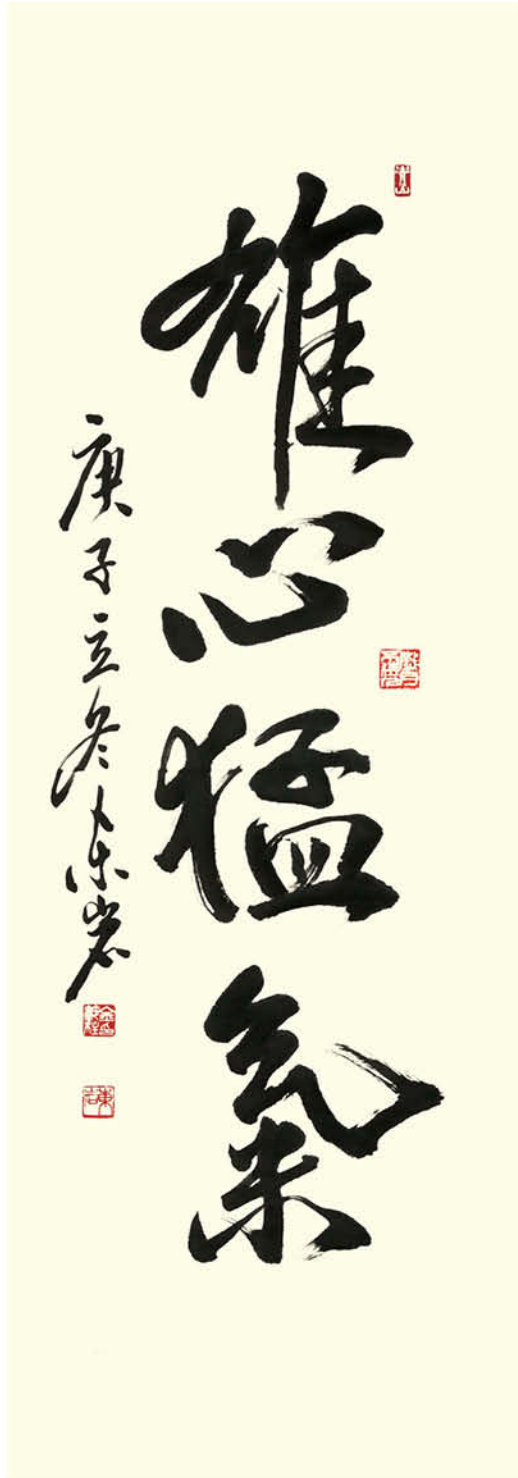 雄心猛氣
庚子立冬 東岩